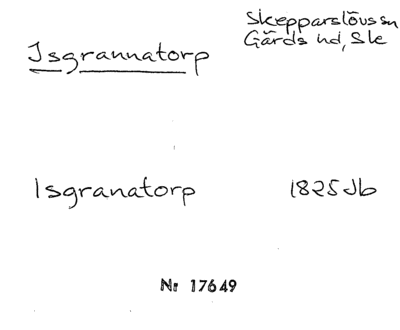 Isgrannatorp
Skepparslövs sn
Gärds hd, Ske
Isgranatorp 1825 Jb
Nr 17649